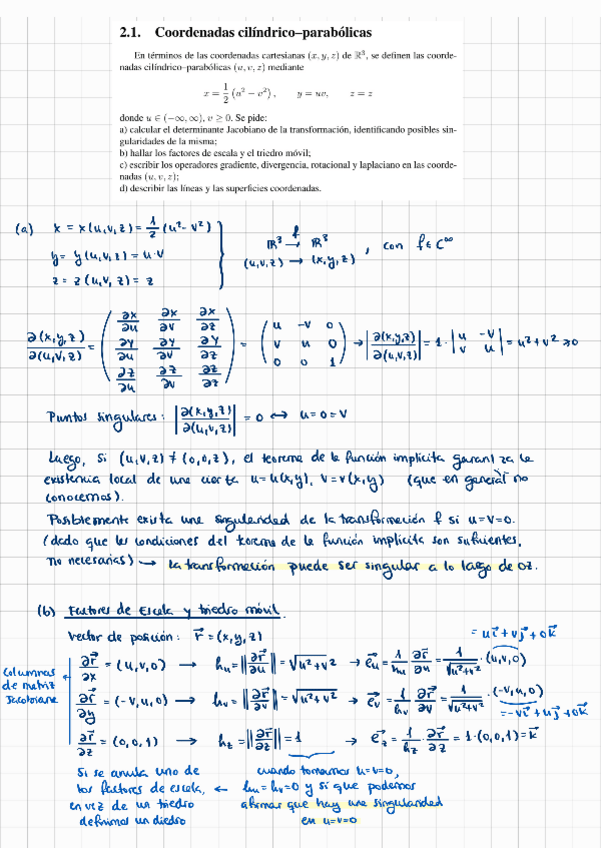 2.1. Coordenadas cilíndrico–parabólicas
En términos de las coordenadas cartesianas (x, y, z) de ℝ³, se definen las coorde-
nadas cilíndrico-parabólicas (u, v, z) mediante
x = 1/2 (u² − v²), y = uv, z = z
donde u ∈ (−∞, ∞), v ≥ 0. Se pide:
a) calcular el determinante Jacobiano de la transformación, identificando posibles sin-
gularidades de la misma;
b) hallar los factores de escala y el triedro móvil;
c) escribir los operadores gradiente, divergencia, rotacional y laplaciano en las coorde-
nadas (u, v, z);
d) describir las líneas y las superficies coordenadas.
(a) x = x(u,v,z) = 1/2 (u² - v²)
y = y(u,v,z) = u·v
z = z(u,v,z) = z
ℝ³ →f ℝ³
(u,v,z) → (x,y,z) , con f ∈ C^∞
∂(x,y,z)/∂(u,v,z) = (∂x/∂u ∂x/∂v ∂x/∂z; ∂y/∂u ∂y/∂v ∂y/∂z; ∂z/∂u ∂z/∂v ∂z/∂z) = (u -v 0; v u 0; 0 0 1) → |∂(x,y,z)/∂(u,v,z)| = 1·|u -v; v u| = u² + v² ≥ 0
Puntos singulares: |∂(x,y,z)/∂(u,v,z)| = 0 ↔ u = 0 = v
Luego, si (u,v,z) ≠ (0,0,z), el teorema de la función implícita garantiza la
existencia local de una cierta u = u(x,y), v = v(x,y) (que en general no
conocemos).
Posiblemente exista una singularidad de la transformación f si u=v=0.
(dado que las condiciones del teorema de la función implícita son suficientes,
no necesarias) → la transformación puede ser singular a lo largo de OZ.
(b) Factores de Escala y triedro móvil.
Vector de posición: r⃗ = (x,y,z)
= u i⃗ + v j⃗ + 0 k⃗
Columnas
de matriz
Jacobiana
∂r⃗/∂x = (u,v,0) → h_u = ||∂r⃗/∂u|| = √(u²+v²) → e⃗_u = 1/h_u ∂r⃗/∂u = 1/√(u²+v²) · (u,v,0)
∂r⃗/∂y = (-v,u,0) → h_v = ||∂r⃗/∂v|| = √(u²+v²) → e⃗_v = 1/h_v · ∂r⃗/∂v = 1/√(u²+v²) · (-v,u,0)
= -v i⃗ + u j⃗ + 0 k⃗
∂r⃗/∂z = (0,0,1) → h_z = ||∂r⃗/∂z|| = 1 → e⃗_z = 1/h_z · ∂r⃗/∂z = 1·(0,0,1) = k⃗
Si se anula uno de
los factores de escala, ←
en vez de un triedro
definimos un diedro
cuando tomamos u=v=0,
h_u = h_v = 0 y sí que podemos
afirmar que hay una singularidad
en u=v=0